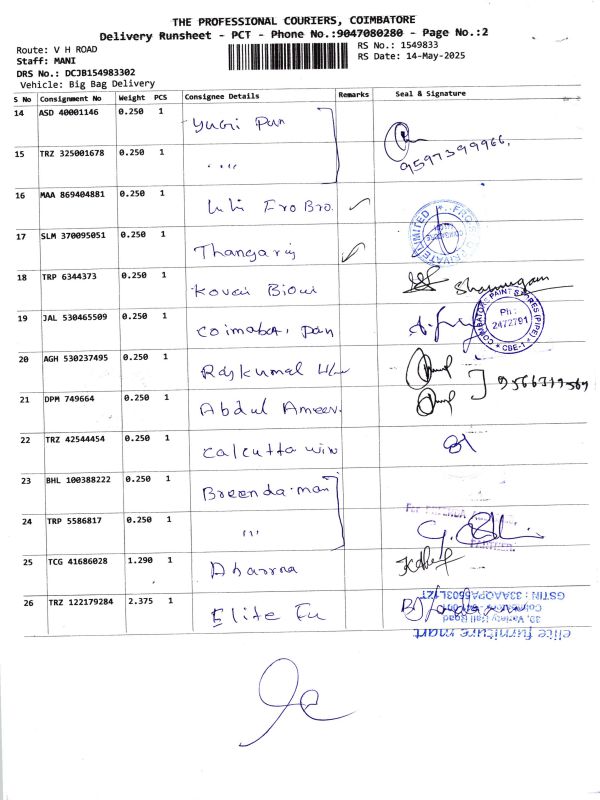 THE PROFESSIONAL COURIERS, COIMBATORE
Delivery Runsheet - PCT - Phone No.:9047080280 - Page No.:2
Route: V H ROAD
RS No.: 1549833
Staff: MANI
RS Date: 14-May-2025
DRS No.: DCJB154983302
Vehicle: Big Bag Delivery
S No Consignment No Weight PCS Consignee Details Remarks Seal & Signature
14 ASD 40001146 0.250 1 Yugi Pan
15 TRZ 325001678 0.250 1 ,,,, 9597399966,
16 MAA 869404881 0.250 1 Fro Bro.
17 SLM 370095051 0.250 1 Thangaraj
18 TRP 6344373 0.250 1 Kovai Shanmugam
19 JAL 530465509 0.250 1 Coimbat, Pan
Ph:
2472791
CBE-1
20 AGH 530237495 0.250 1 Rajkumal
21 DPM 749664 0.250 1 Abdul Ameer.
22 TRZ 42544454 0.250 1 Calcutta win
23 BHL 100388222 0.250 1 Breenda man
24 TRP 5586817 0.250 1 ,,,
PARTNER
25 TCG 41686028 1.290 1 Dharma
26 TRZ 122179284 2.375 1 Elite Fu
elite furniture mart
39, Variety Hall Road